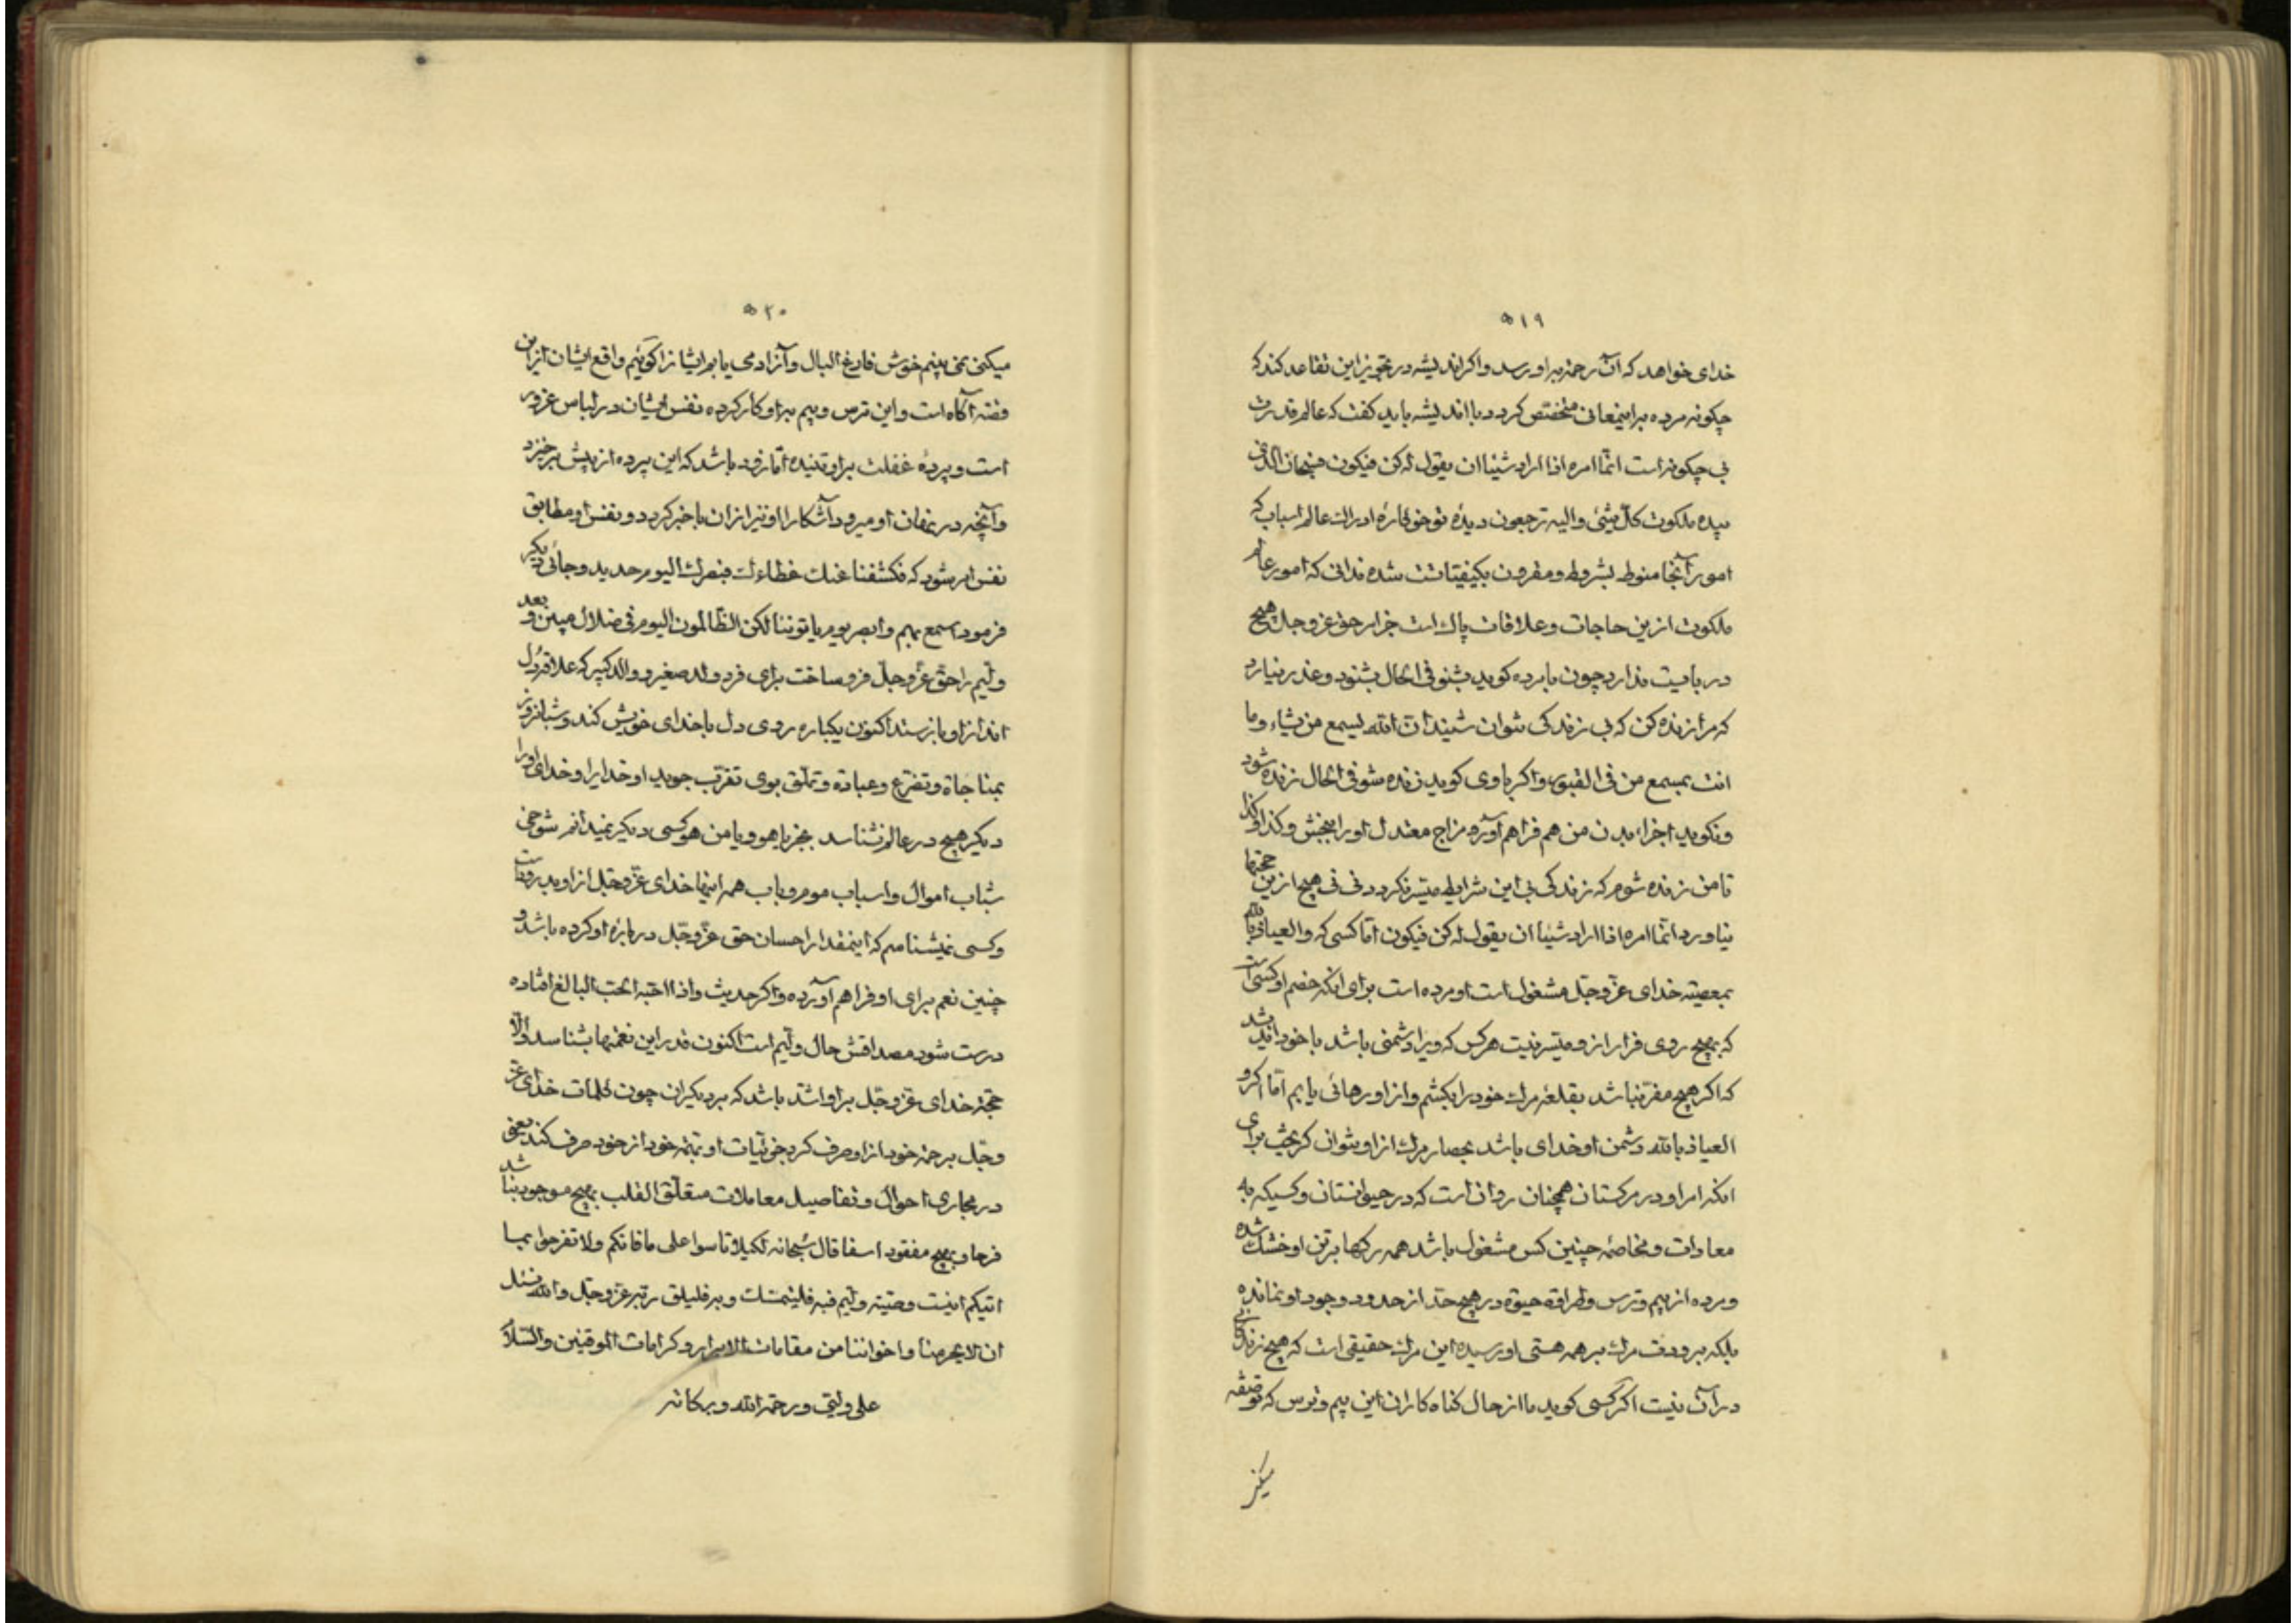 ٥١٩
خدای خواهد که آن رحمة براو رسد واکر اندیشه در تجویز این تقاعد کند که
چکونه مرده براینمعانی متخصص کردد با اندیشه باید کفت که عالم قدرت
بی چکونه است انّما امره اذا اراد شیئا ان یقول له کن فیکون فسبحان الّذی
بیده ملکوت کلّ شیئی والیه ترجعون دیدهٔ تو خو کارهٔ ادراک عالم اسباب که
امور آنجا منوط بشروط ومقرون بکیفیتات شده ندانی که امور عالم
ملکوت ازین حاجات وعلاقات پاک است جز امر حق عزّوجل هیچ
دربایست ندارد چون با مرده کوید بشنو فی الحال بشنود وعذر نیارد
که مرا زنده کن که بی زندکی نتوان شنید انّ الله یسمع من یشاء وما
انت بمسمع من فی القبور واکر باوی کوید زنده شو فی الحال زنده شود
ونکوید اجزاء بدن من هم فراهم آور و مزاج معتدل او را ببخش وکذا وکذا
تا من زنده شوم که زندکی بی این شرایط میّسر نکردد نی نی هیچ ازین حجتها
نیاورد انّما امره اذا اراد شیئا ان یقول له کن فیکون امّا کسی که والعیاذ بالله
بمعصیة خدای عزّوجلّ مشغول است او مرده است برای انکه خصم او کسی است
که بهیچ روی فرار ازو میّسر نیست هرکس که ویرا دشمنی باشد با خود اندیشد
که اکر هیچ مفرّ نباشد بقلعهٔ مرک خود را بکشم واز او رهائی یابم امّا اکر و
العیاذ بالله دشمن او خدای باشد بحصار مرک از او نتوان کریخت برای
انکه امر او در مرکستان همچنان روان است که در حیوانستان وکسیکه به
معادات ومخاصهٔ چنین کس مشغول باشد همه رکها برتن او خشک شده
ومرده از بیم وترس وطراوة حیوة در هیچ حدّ از حدود وجود او نمانده
بلکه برودت مرک بر همه هستی او رسیده این مرک حقیقی است که هیچ زندکانی
در آن نیست اکر کسی کوید ما از حال کناه کاران این بیم وترس که تو صفه
میکنی
٥٢٠
میکنی نمی بینم خوش فارغ البال وآزاد می یابم ایشانرا کوئیم واقع ایشان ازین
فتنه آکاه است واین ترس وبیم براو کار کرده نفس ایشان در لباس غرور
است وپردهٔ غفلت براو تنیده امّا زود باشد که این پرده از پیش برخیزد
وآنچه در نهان او میرود آشکارا او نیز از آن با خبر کردد ونفس او مطابق
نفس امر شود که فکشفنا عنک غطاءک فبصرک الیوم حدید وجائی دیکر
فرمود اسمع بهم وابصر یوم یاتوننا لکن الظّالمون الیوم فی ضلال مبین وبعد
ولیّم را حقّ عزّوجلّ فرو ساخت برای فرد ولد صغیر ووالد کبیر که علاقه دل
انداز او باز ستد اکنون یکباره روی دل با خدای خویش کند وشبانروز
بمناجاة وتضرّع وعبادة وتملّق بوی تقرّب جوید او خدایرا وخدای اورا
دیکر هیچ در عالم نشناسد بجز یا هو ویا من هو کسی دیکر نمیدانم شوخی
شباب اموال واسباب موم وباب همه اینها خدای عزّوجلّ ازاو بدر وقناست
وکسی نمیشناسم که اینمقدار احسان حق عزّوجلّ دربارهٔ او کرده باشد و
چنین نعم برای او فراهم آورده واکر حدیث واذا احبّه الحبّ البالغ افتاده
درست شود مصداقش حال ولیّم است اکنون قدر این نعمتها بشناسد والّا
حجّة خدای عزّوجلّ براو اشدّ باشد که بر دیکران چون کلمات خدای عزّ
وجلّ برحمة خود ازاو صرف کرد جزئیّات او بهمّة خود از خود صرف کند یعنی
در مجاری احوال وتفاصیل معاملات متعلّق القلب بهیچ موجود نباشد
فرحا وبهیچ مفقود اسفا قال سبحانه لکیلا تاسوا علی ما فاتکم ولا تفرحوا بما
اتیکم اینست وصیّة ولیّم فبه فلیتمسّک وبه فلیلق ربّه عزّوجلّ والله نسئل
ان لا یحرمنا واخواننا من مقامات الابرار وکرامات الموقنین والسّلام
علی ولیّی ورحمة الله وبرکاته